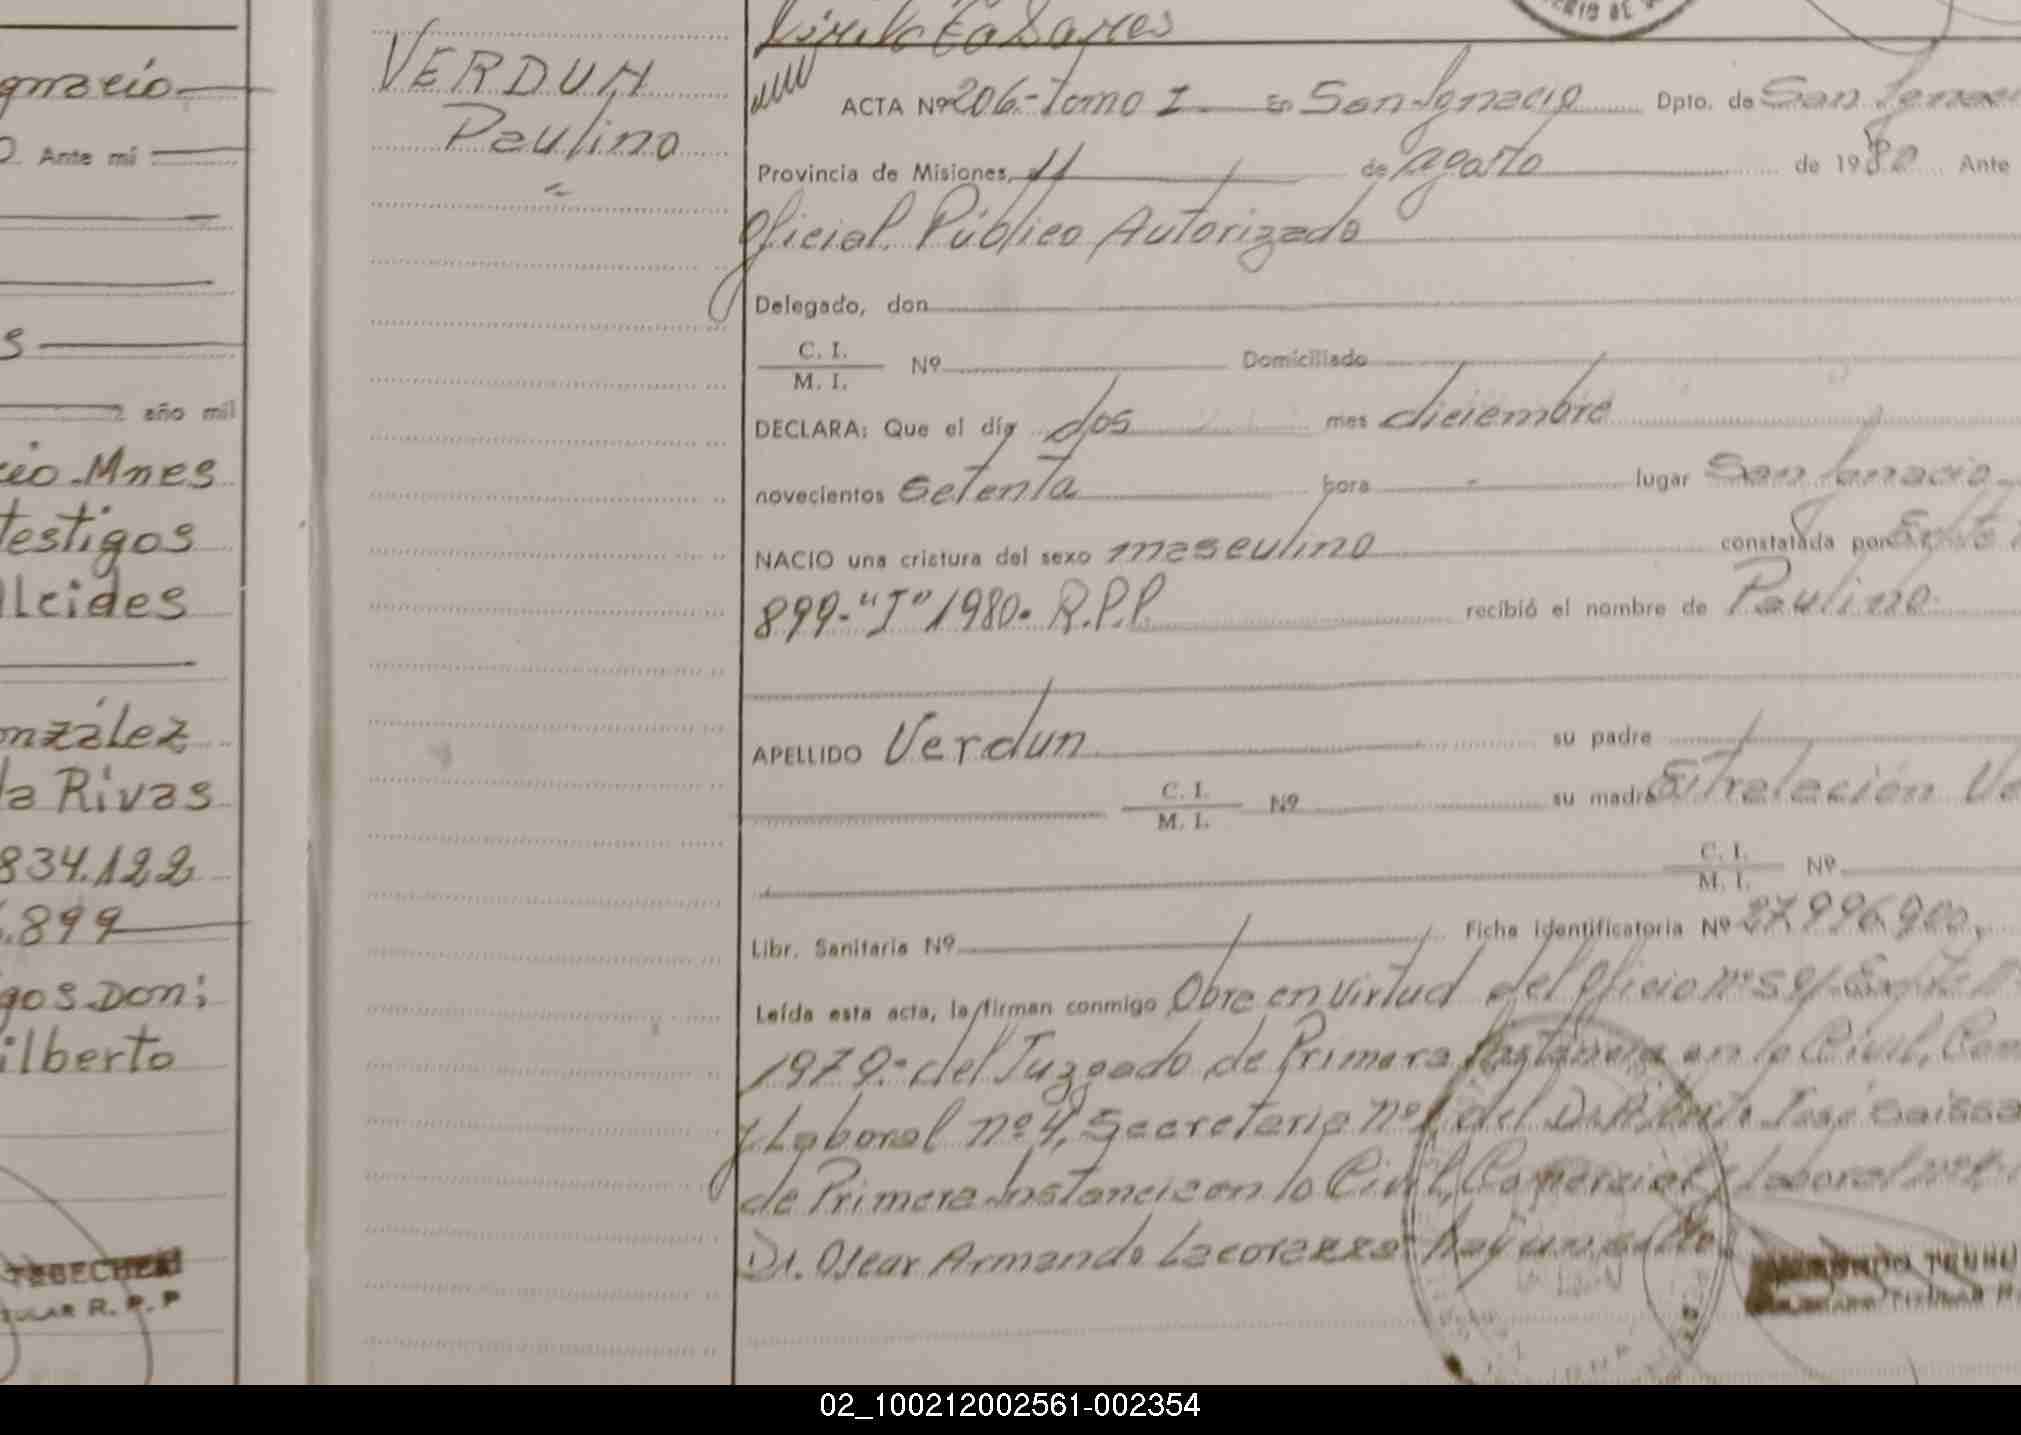 gnacio
Ante mi
s
año mil
cio. Mnes
testigos
lcides
onzález
la Rivas
834.122
.899
gos Don;
ilberto
TULAR R. P. P
VERDUN
Paulino
Casares
ACTA Nº 206.- Tomo I En San Ignacio Dpto. de San Ignac
Provincia de Misiones, 11 de agosto de 1980 Ante
Oficial Público Autorizado
Delegado, don
C. I.
M. I.
Nº Domiciliado
DECLARA: Que el día dos mes diciembre
novecientos setenta hora - lugar San Ignacio
NACIO una criatura del sexo masculino constatada por Expte
899-"I" 1980. R.P.P. recibió el nombre de Paulino
APELLIDO Verdun su padre
C. I.
M. I.
Nº su madre Ve
C. I.
M. I.
Nº
Libr. Sanitaria Nº Ficha identificatoria Nº 27.996.900,
Leída esta acta, la firman conmigo Obre en virtud del Oficio nº 59/ Expte n
1979.- del Juzgado de Primera Instancia en lo Civil, Com
y Laboral nº 4, Secretaria nº 1 del Dr. José
de Primera Instancia en lo Civil, Comercial y Laboral nº
Dr. Oscar Armando Hay un sello
02_100212002561-002354